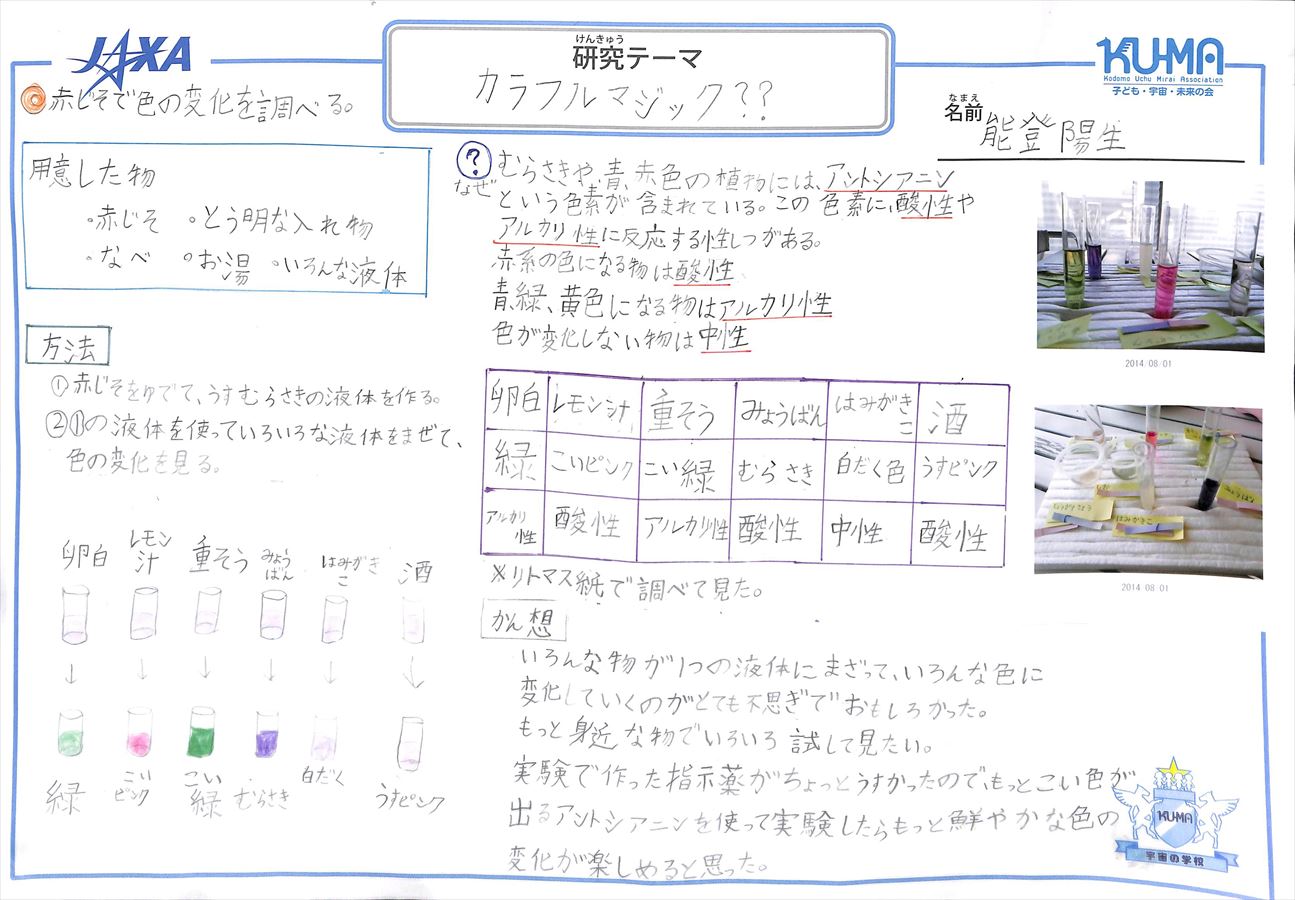 JAXA
けんきゅう
研究テーマ
カラフルマジック??
KU-MA
Kodomo Uchu Mirai Association
子ども・宇宙・未来の会
なまえ
名前 能登 陽生
赤じそで色の変化を調べる。
用意した物
・赤じそ ・とう明な入れ物
・なべ ・お湯 ・いろんな液体
方法
①赤じそをゆでて、うすむらさきの液体を作る。
②①の液体を使っていろいろな液体をまぜて、
色の変化を見る。
卵白 レモン汁 重そう みょうばん はみがきこ 酒
↓ ↓ ↓ ↓ ↓ ↓
緑 こいピンク こい緑 むらさき 白だく うすピンク
?
なぜ
むらさきや、青、赤色の植物には、アントシアニン
という色素が含まれている。この色素に、酸性や
アルカリ性に反応する性しつがある。
赤系の色になる物は酸性
青、緑、黄色になる物はアルカリ性
色が変化しない物は中性
卵白 レモン汁 重そう みょうばん はみがきこ 酒
緑 こいピンク こい緑 むらさき 白だく色 うすピンク
アルカリ性 酸性 アルカリ性 酸性 中性 酸性
※リトマス紙で調べて見た。
かん想
いろんな物が1つの液体にまざって、いろんな色に
変化していくのがとても不思ぎでおもしろかった。
もっと身近な物でいろいろ試して見たい。
実験で作った指示薬がちょっとうすかったので、もっとこい色が
出るアントシアニンを使って実験したらもっと鮮やかな色の
変化が楽しめると思った。
2014.08.01
はみがきこ
2014.08.01
KU-MA
宇宙の学校